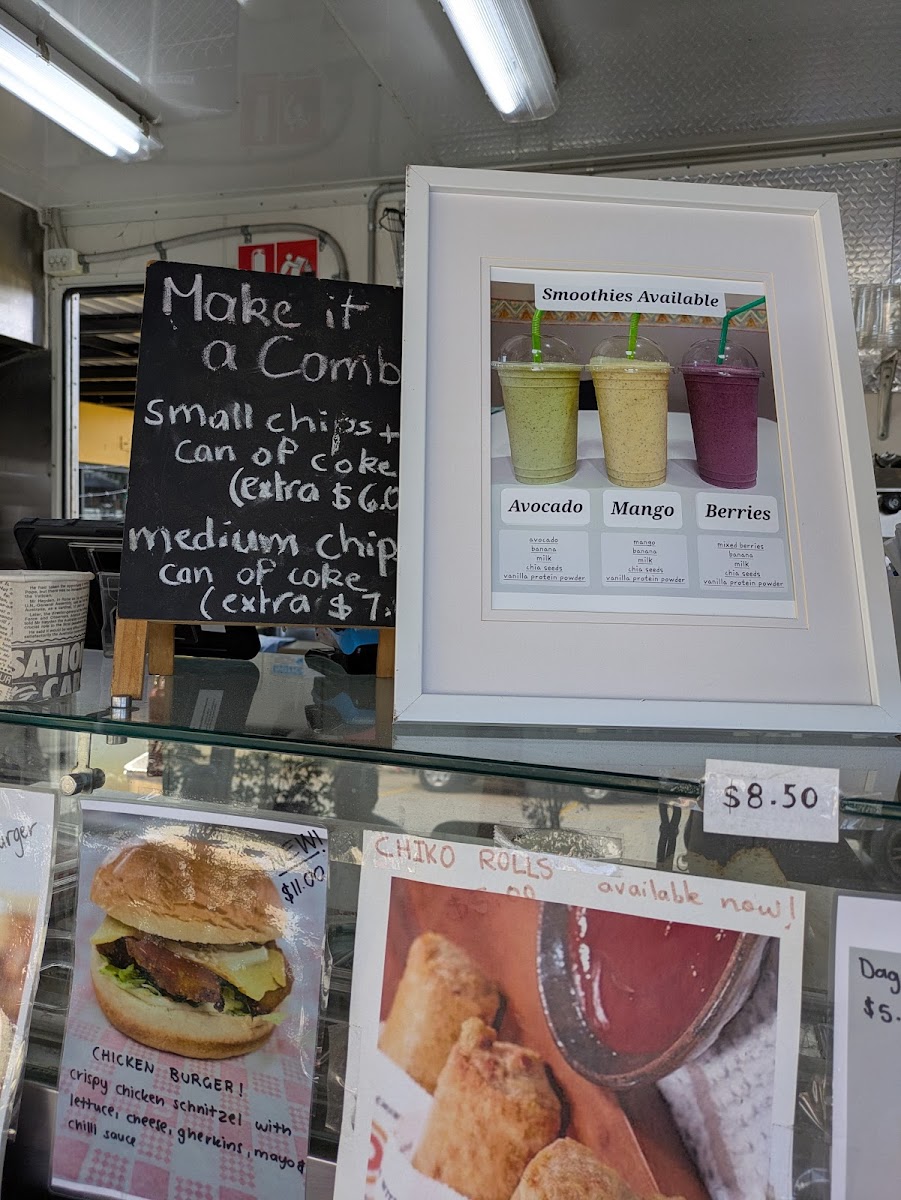 Make it
a Comb
small chips +
can of coke
(extra $6.0
medium chip
can of coke
(extra $7.
Smoothies Available
Avocado
avocado
banana
milk
chia seeds
vanilla protein powder
Mango
mango
banana
milk
chia seeds
vanilla protein powder
Berries
mixed berries
banana
milk
chia seeds
vanilla protein powder
SATIO
CA
$8.50
urger
NEW!
$11.00
CHICKEN BURGER!
crispy chicken schnitzel with
lettuce, cheese, gherkins, mayo &
chilli sauce
CHIKO ROLLS
available now!
Dag
$5.